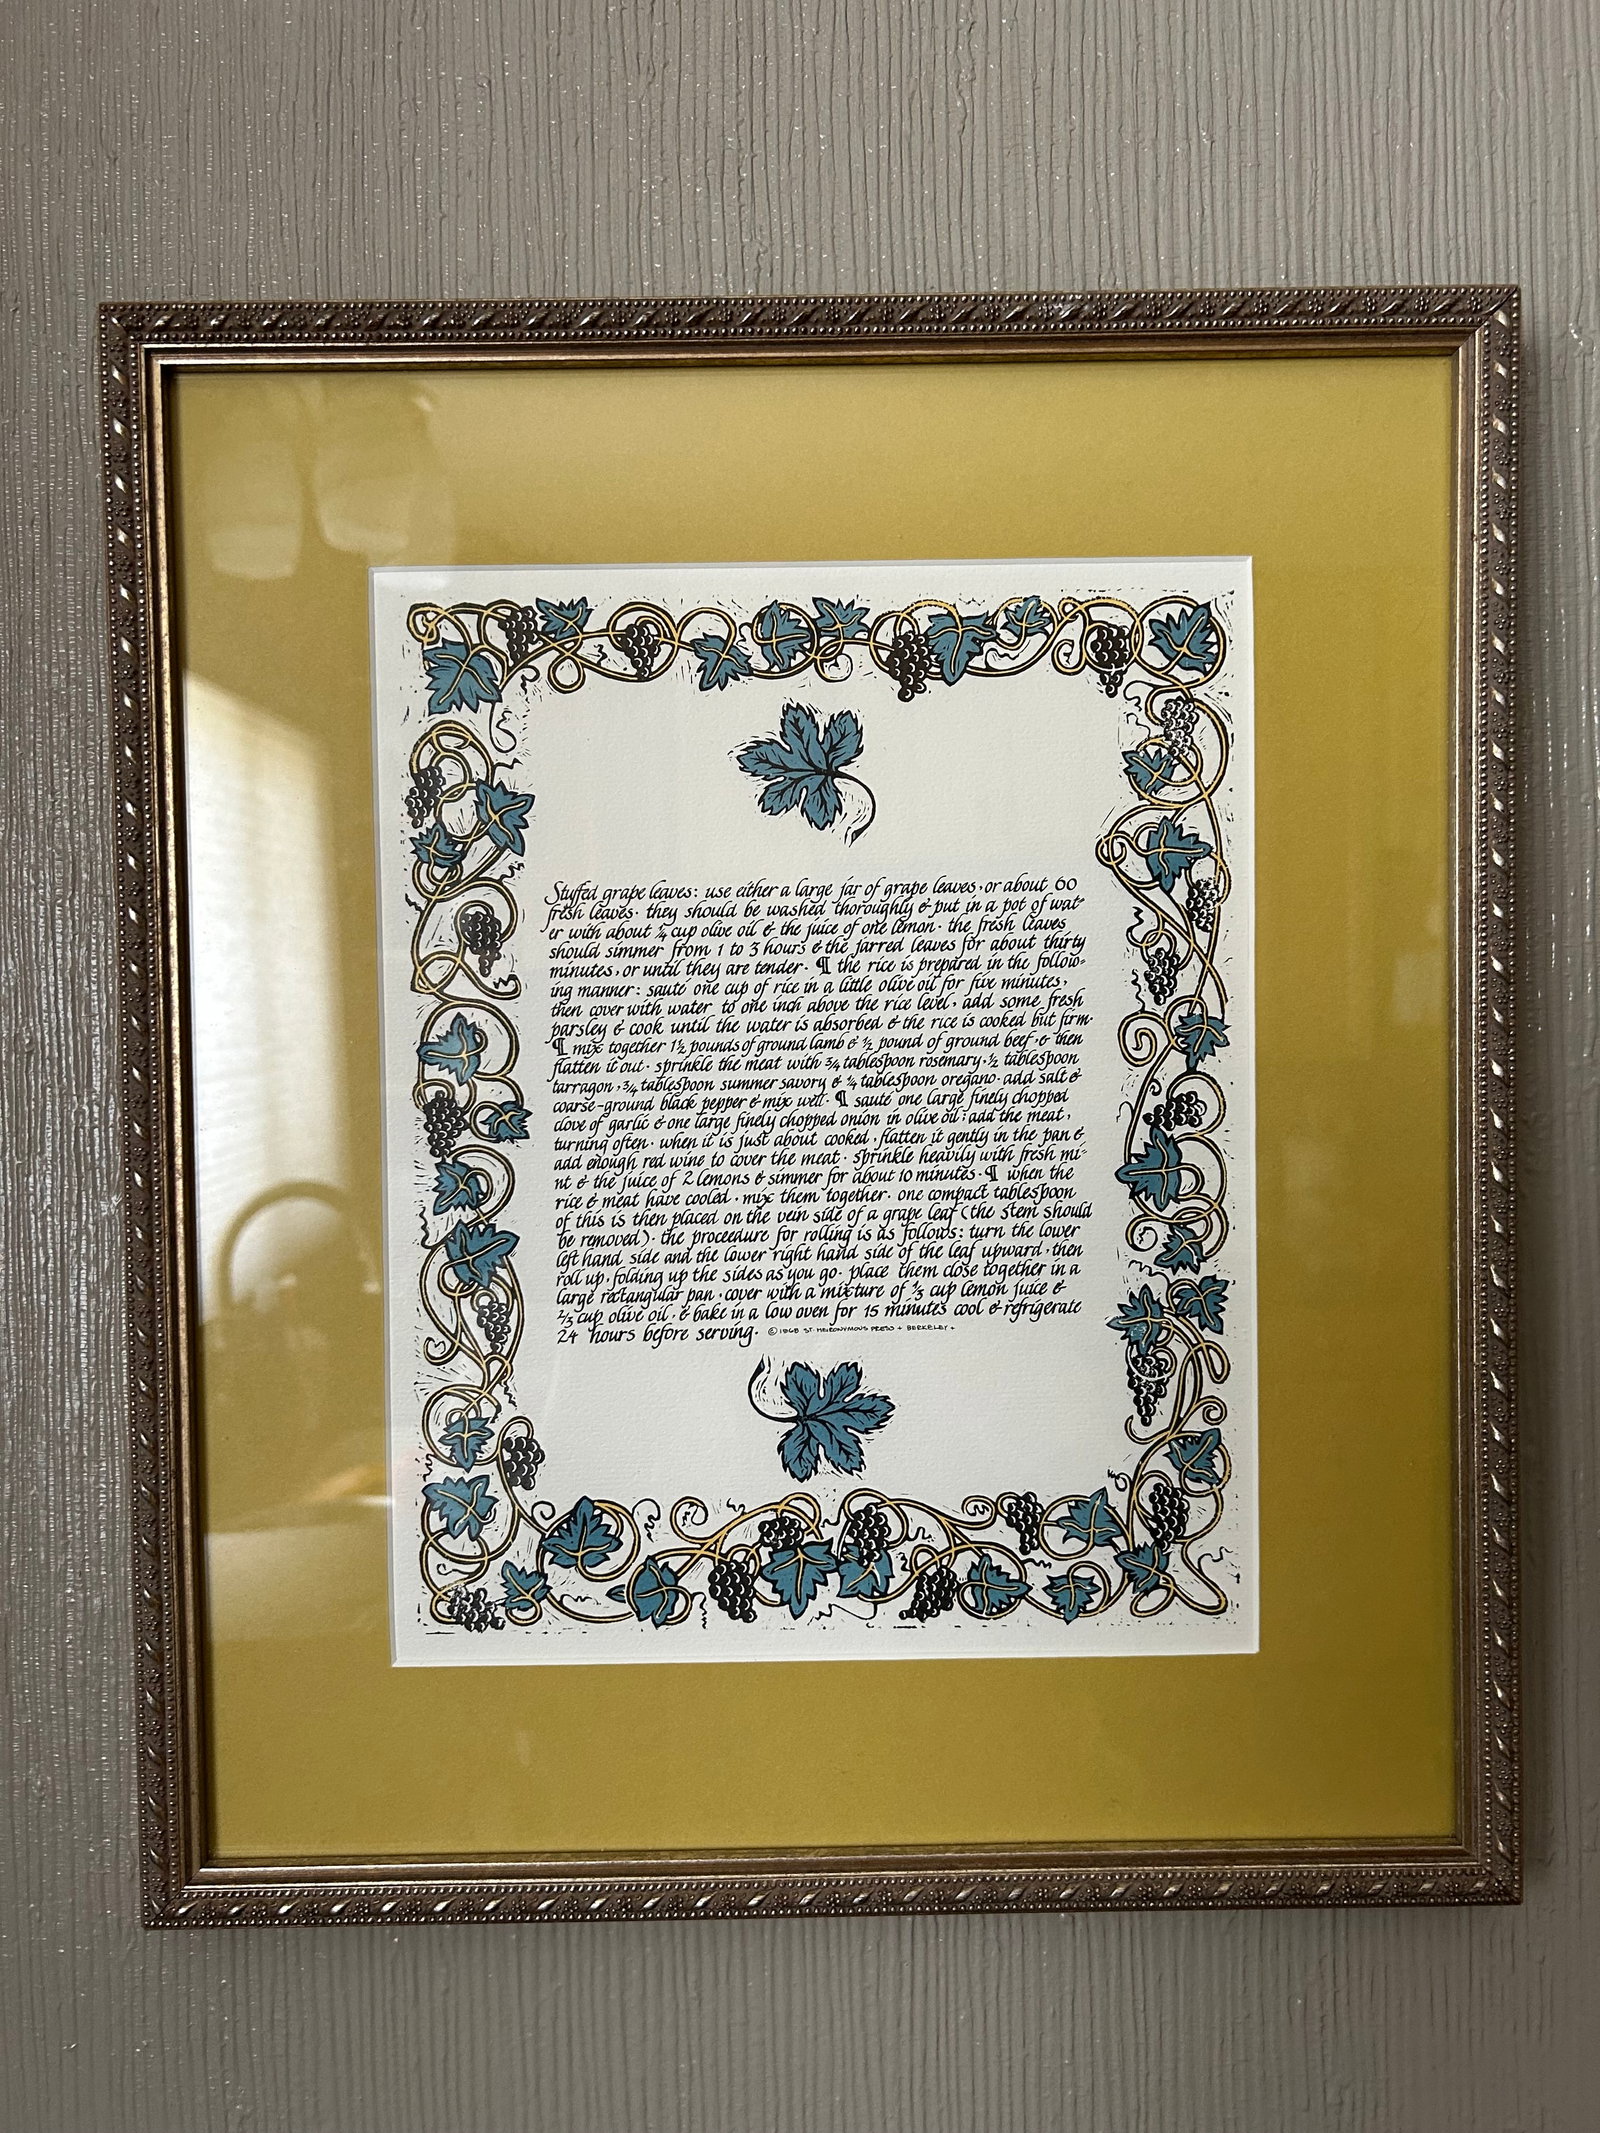 Stuffed grape leaves: use either a large jar of grape leaves, or about 60
fresh leaves. they should be washed thoroughly & put in a pot of wat-
er with about ¼ cup olive oil & the juice of one lemon. the fresh leaves
should simmer from 1 to 3 hours & the jarred leaves for about thirty
minutes, or until they are tender. ¶ the rice is prepared in the follow-
ing manner: sauté one cup of rice in a little olive oil for five minutes,
then cover with water to one inch above the rice level, add some fresh
parsley & cook until the water is absorbed & the rice is cooked but firm.
¶ mix together 1½ pounds of ground lamb & ½ pound of ground beef, & then
flatten it out. sprinkle the meat with ¾ tablespoon rosemary, ½ tablespoon
tarragon, ¾ tablespoon summer savory & ¼ tablespoon oregano. add salt &
coarse-ground black pepper & mix well. ¶ sauté one large finely chopped
clove of garlic & one large finely chopped onion in olive oil; add the meat,
turning often. when it is just about cooked, flatten it gently in the pan &
add enough red wine to cover the meat. sprinkle heavily with fresh mi-
nt & the juice of 2 lemons & simmer for about 10 minutes. ¶ when the
rice & meat have cooled, mix them together. one compact tablespoon
of this is then placed on the vein side of a grape leaf (the stem should
be removed). the proceedure for rolling is as follows: turn the lower
left hand side and the lower right hand side of the leaf upward, then
roll up, folding up the sides as you go. place them close together in a
large rectangular pan, cover with a mixture of ⅓ cup lemon juice &
⅔ cup olive oil, & bake in a low oven for 15 minutes cool & refrigerate
24 hours before serving. © 1968 ST. HEIRONYMOUS PRESS + BERKELEY +